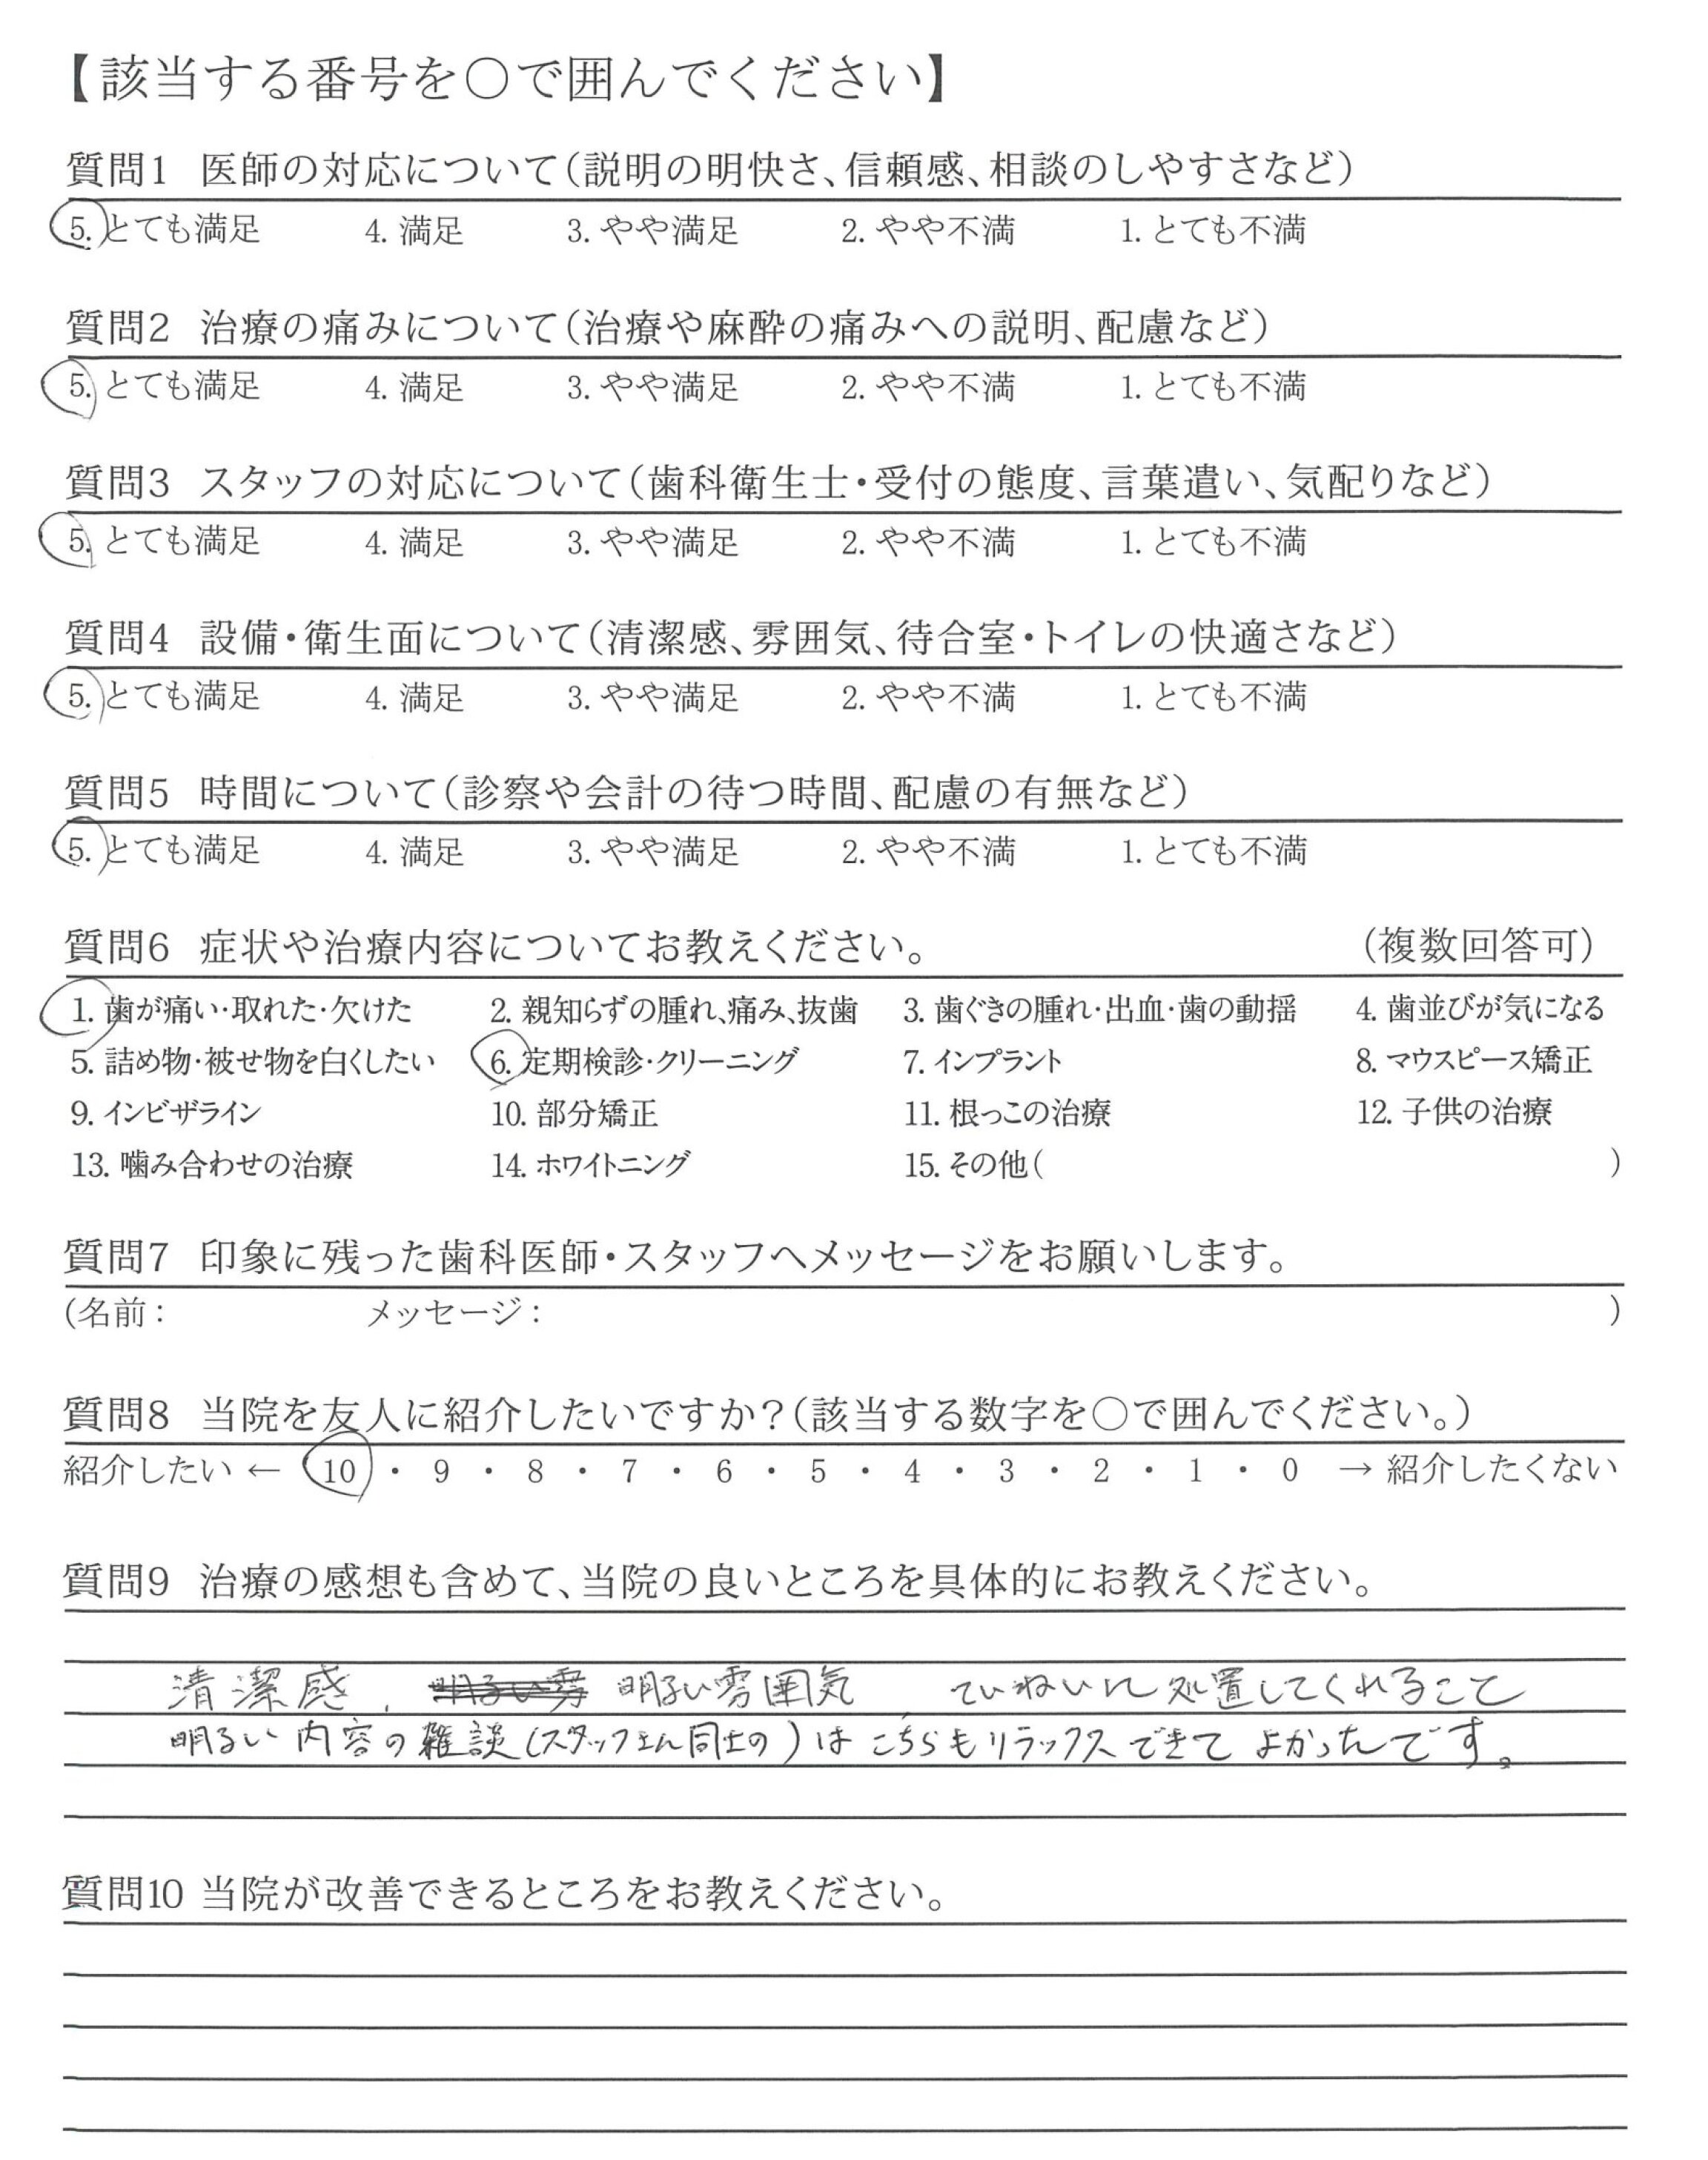 【該当する番号を○で囲んでください】
質問1 医師の対応について(説明の明快さ、信頼感、相談のしやすさなど)
5. とても満足 4. 満足 3. やや満足 2. やや不満 1. とても不満
質問2 治療の痛みについて(治療や麻酔の痛みへの説明、配慮など)
5. とても満足 4. 満足 3. やや満足 2. やや不満 1. とても不満
質問3 スタッフの対応について(歯科衛生士・受付の態度、言葉遣い、気配りなど)
5. とても満足 4. 満足 3. やや満足 2. やや不満 1. とても不満
質問4 設備・衛生面について(清潔感、雰囲気、待合室・トイレの快適さなど)
5. とても満足 4. 満足 3. やや満足 2. やや不満 1. とても不満
質問5 時間について(診察や会計の待つ時間、配慮の有無など)
5. とても満足 4. 満足 3. やや満足 2. やや不満 1. とても不満
質問6 症状や治療内容についてお教えください。 (複数回答可)
1. 歯が痛い・取れた・欠けた 2. 親知らずの腫れ、痛み、抜歯 3. 歯ぐきの腫れ・出血・歯の動揺 4. 歯並びが気になる
5. 詰め物・被せ物を白くしたい 6. 定期検診・クリーニング 7. インプラント 8. マウスピース矯正
9. インビザライン 10. 部分矯正 11. 根っこの治療 12. 子供の治療
13. 噛み合わせの治療 14. ホワイトニング 15. その他( )
質問7 印象に残った歯科医師・スタッフへメッセージをお願いします。
(名前: メッセージ: )
質問8 当院を友人に紹介したいですか?(該当する数字を○で囲んでください。)
紹介したい ← 10 ・ 9 ・ 8 ・ 7 ・ 6 ・ 5 ・ 4 ・ 3 ・ 2 ・ 1 ・ 0 → 紹介したくない
質問9 治療の感想も含めて、当院の良いところを具体的にお教えください。
清潔感、明るい雰 明るい雰囲気 ていねいに処置してくれること
明るい内容の雑談(スタッフさん同士の)はこちらもリラックスできてよかったです。
質問10 当院が改善できるところをお教えください。